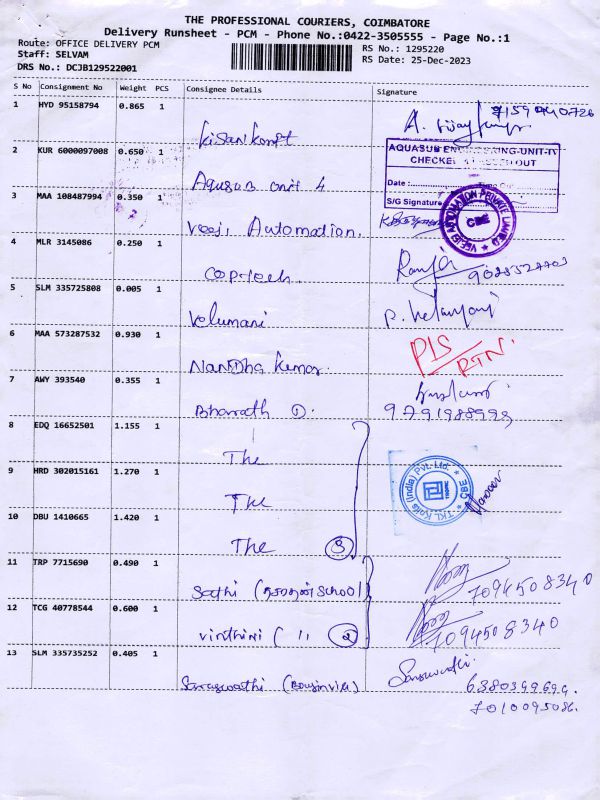 THE PROFESSIONAL COURIERS, COIMBATORE
Delivery Runsheet - PCM - Phone No.:0422-3505555 - Page No.:1
Route: OFFICE DELIVERY PCM
Staff: SELVAM
DRS No.: DCJB129522001
RS No.: 1295220
RS Date: 25-Dec-2023
S No Consignment No Weight PCS Consignee Details Signature
1 HYD 95158794 0.865 1
2 KUR 6000097008 0.650 1 Aqusub unit 4
AQUASUB ENGINEERING-UNIT-IV
CHECKED OUT
Date :
S/G Signature
3 MAA 108487994 0.350 1 Veeji Automation.
VEEJEI AUTOMATION PRIVATE LIMITED
CBE
4 MLR 3145086 0.250 1 Ramja
5 SLM 335725808 0.005 1 Velumani P. Velumani
6 MAA 573287532 0.930 1 Nandha Kumar. PIS/RTN.
7 AWY 393540 0.355 1 Bharath D. 9791988993
8 EDQ 16652501 1.155 1 The
9 HRD 302015161 1.270 1 The
TKL Knits (India) Pvt. Ltd. CBE
10 DBU 1410665 1.420 1 The 3
11 TRP 7715690 0.490 1 Sathi ( School) 7094508340
12 TCG 40778544 0.600 1 Vinthini ( 11 2 7094508340
13 SLM 335735252 0.405 1 Saraswathi Saraswathi
7010095086.